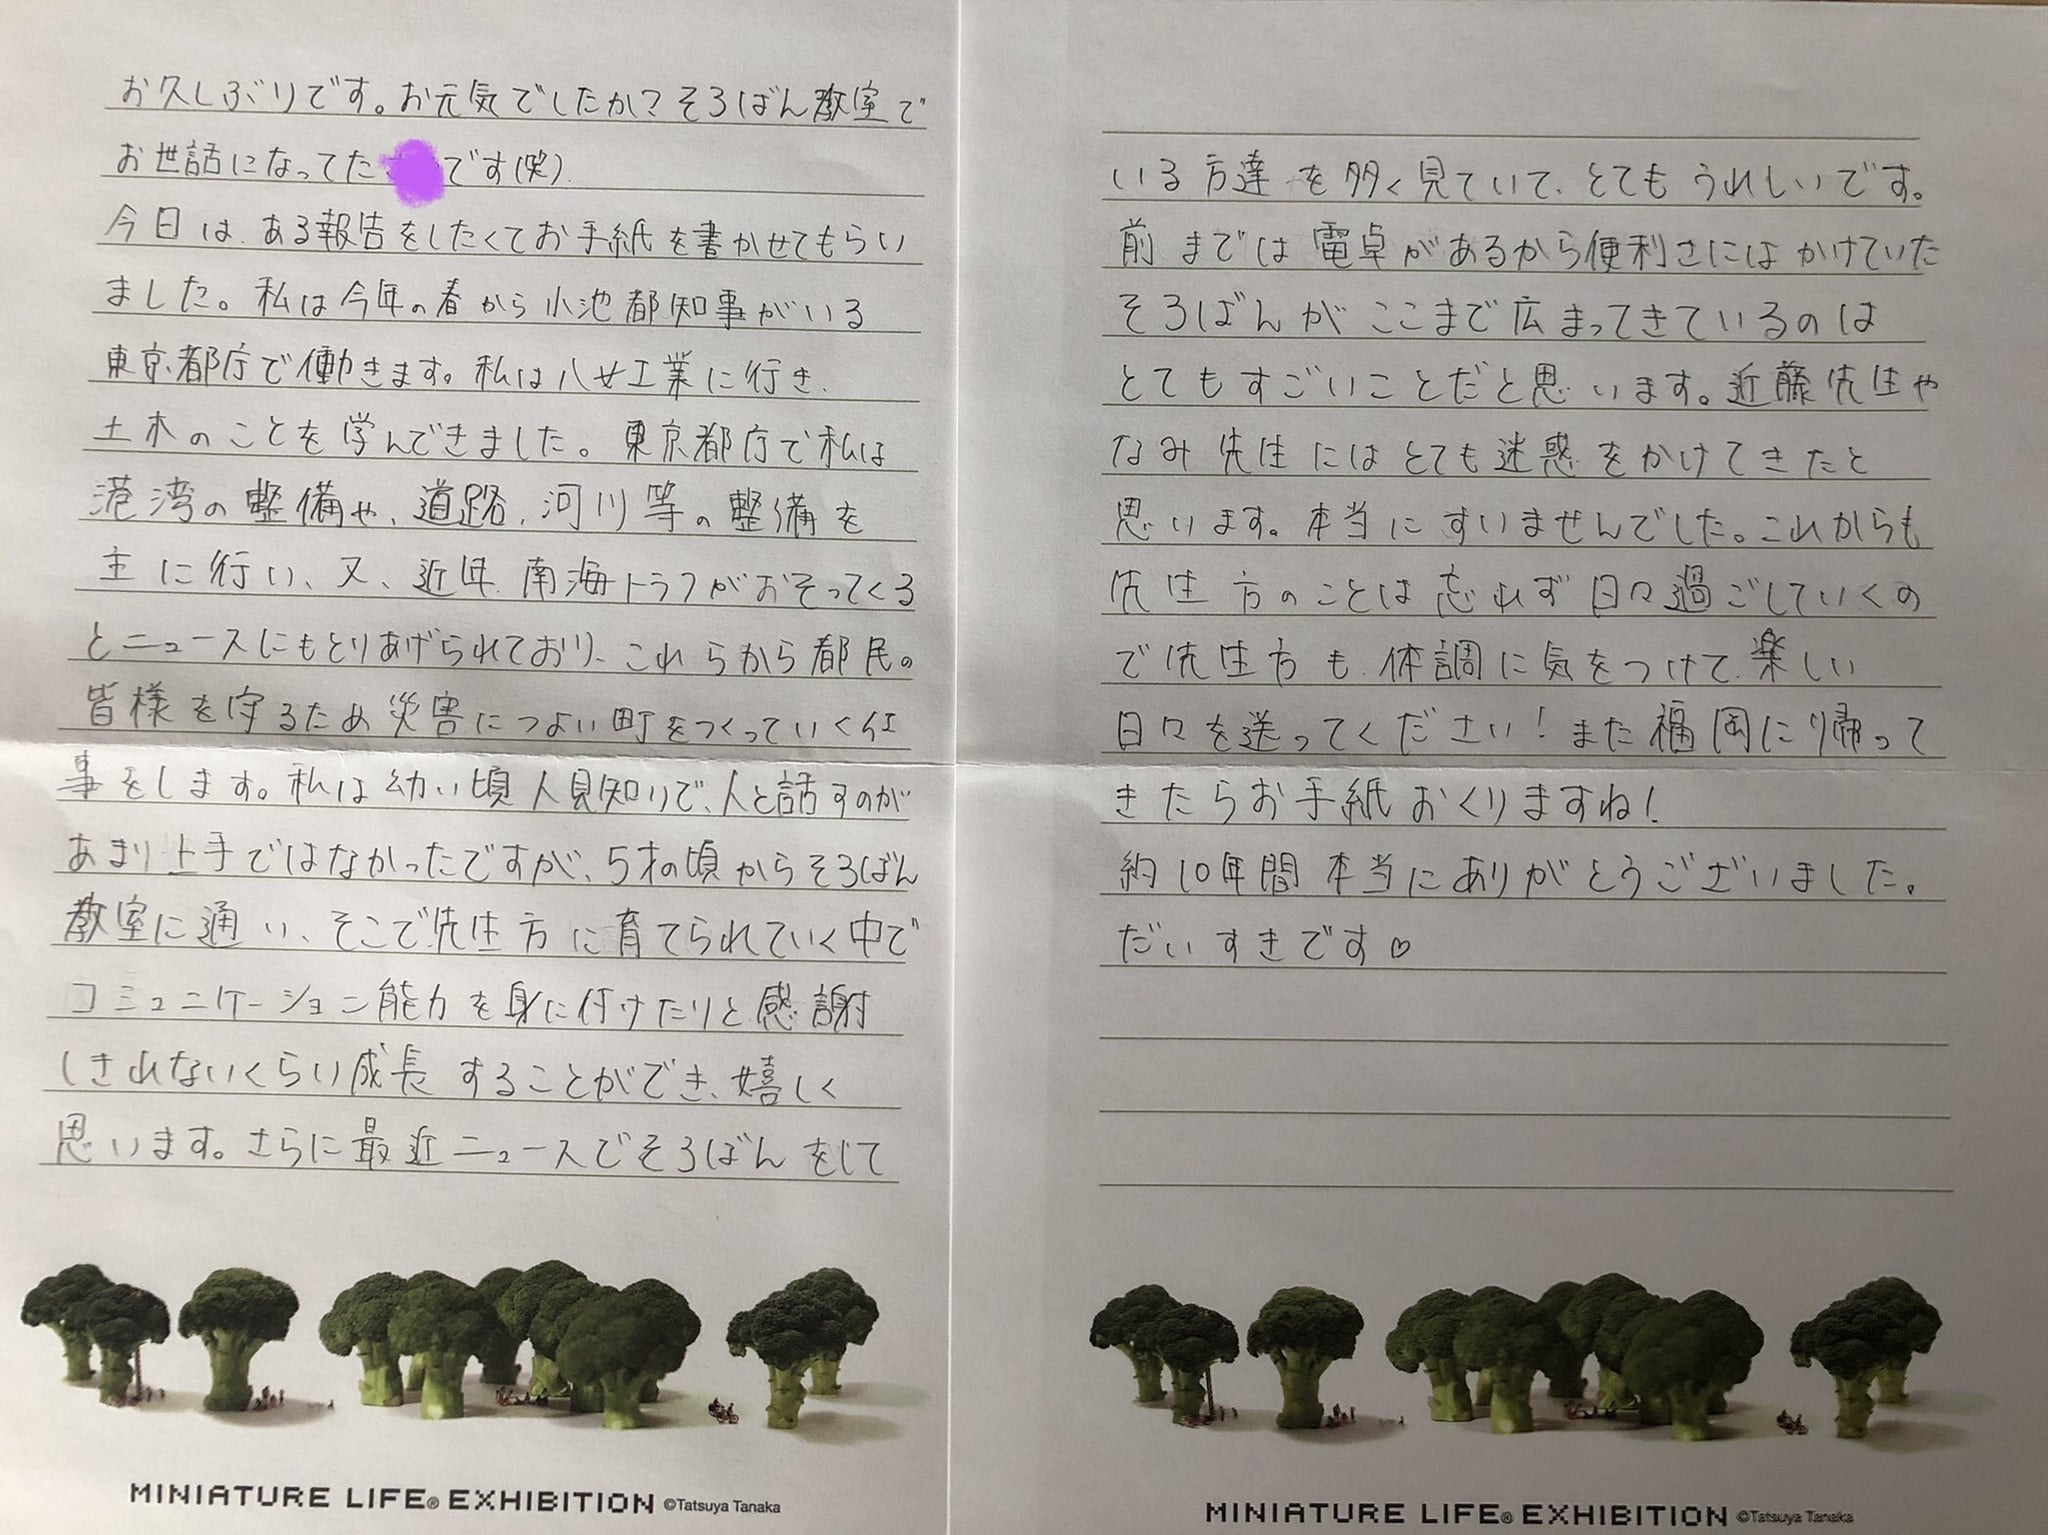 お久しぶりです。お元気でしたか?そろばん教室で
お世話になってた です(笑).
今日は、ある報告をしたくてお手紙を書かせてもらい
ました。私は今年の春から小池都知事がいる
東京都庁で働きます。私は八女工業に行き、
土木のことを学んできました。東京都庁で私は
港湾の整備や、道路、河川等の整備を
主に行い、又、近年、南海トラフがおそってくる
とニュースにもとりあげられており、これらから都民の
皆様を守るため災害につよい町をつくっていく仕
事をします。私は幼い頃人見知りで、人と話すのが
あまり上手ではなかったですが、5才の頃からそろばん
教室に通い、そこで先生方に育てられていく中で
コミュニケーション能力を身に付けたりと感謝
しきれないくらい成長することができ、嬉しく
思います。さらに最近ニュースでそろばんをして
いる方達を多く見ていて、とてもうれしいです。
前までは電卓があるから便利さにはかけていた
そろばんがここまで広まってきているのは
とてもすごいことだと思います。近藤先生や
なみ先生にはとても迷惑をかけてきたと
思います。本当にすいませんでした。これからも
先生方のことは忘れず日々過ごしていくの
で先生方も、体調に気をつけて、楽しい
日々を送ってください!また福岡に帰って
きたらお手紙おくりますね!
約10年間本当にありがとうございました。
だいすきです♡
MINIATURE LIFE® EXHIBITION ©Tatsuya Tanaka
MINIATURE LIFE® EXHIBITION ©Tatsuya Tanaka